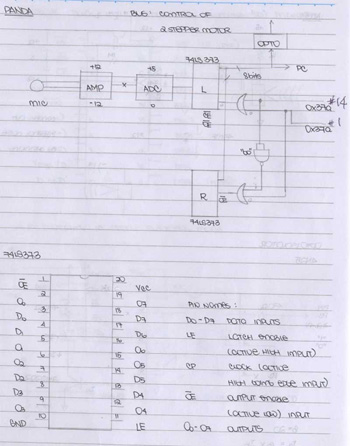 PANDA
BUS: CONTROL OF
2 STEPPER MOTOR
OPTO
74LS373
PC
8bits
+12
+5
AMP
x
ADC
L
mic
-12
0
OE
0x37a #14
0x37a #1
"00"
R
OE
74LS373
74LS373
OE 1 20 Vcc
O0 2 19 O7
D0 3 18 D7
D1 4 17 D6
O1 5 16 O6
O2 6 15 O5
D2 7 14 D5
D3 8 13 D4
O3 9 12 O4
GND 10 11 LE
PIN NAMES:
D0-D7 DATA INPUTS
LE LATCH ENABLE
(ACTIVE HIGH INPUT)
CP CLOCK (ACTIVE
HIGH GOING EDGE INPUT)
OE OUTPUT ENABLE
(ACTIVE LOW) INPUT
O0-O7 OUTPUTS